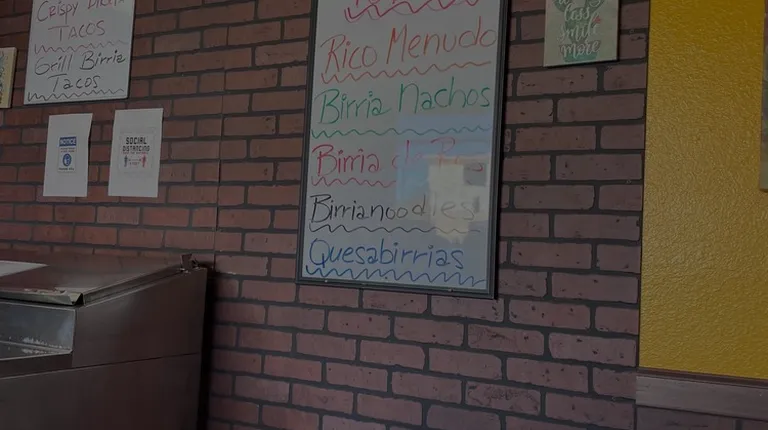 TACOS
Grill Birria
Tacos
NOTICE
SOCIAL
DISTANCING
Rico Menudo
Birria Nachos
Birria de
Birrianoodles
Quesabirrias
less
smile
more